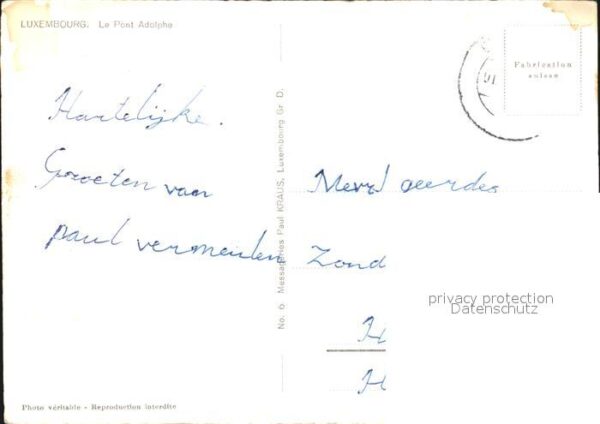 LUXEMBOURG. Le Pont Adolphe
Fabrication
suisse
Hartelijke.
Groeten van
paul vermeulen
No. 6 Messageries Paul KRAUS, Luxembourg Gr D.
Zond
H
H
privacy protection
Datenschutz
Photo véritable - Reproduction interdite